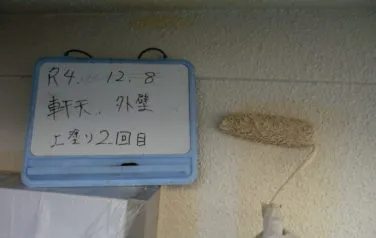 R4. 12. 8
軒天、外壁
上塗り2回目